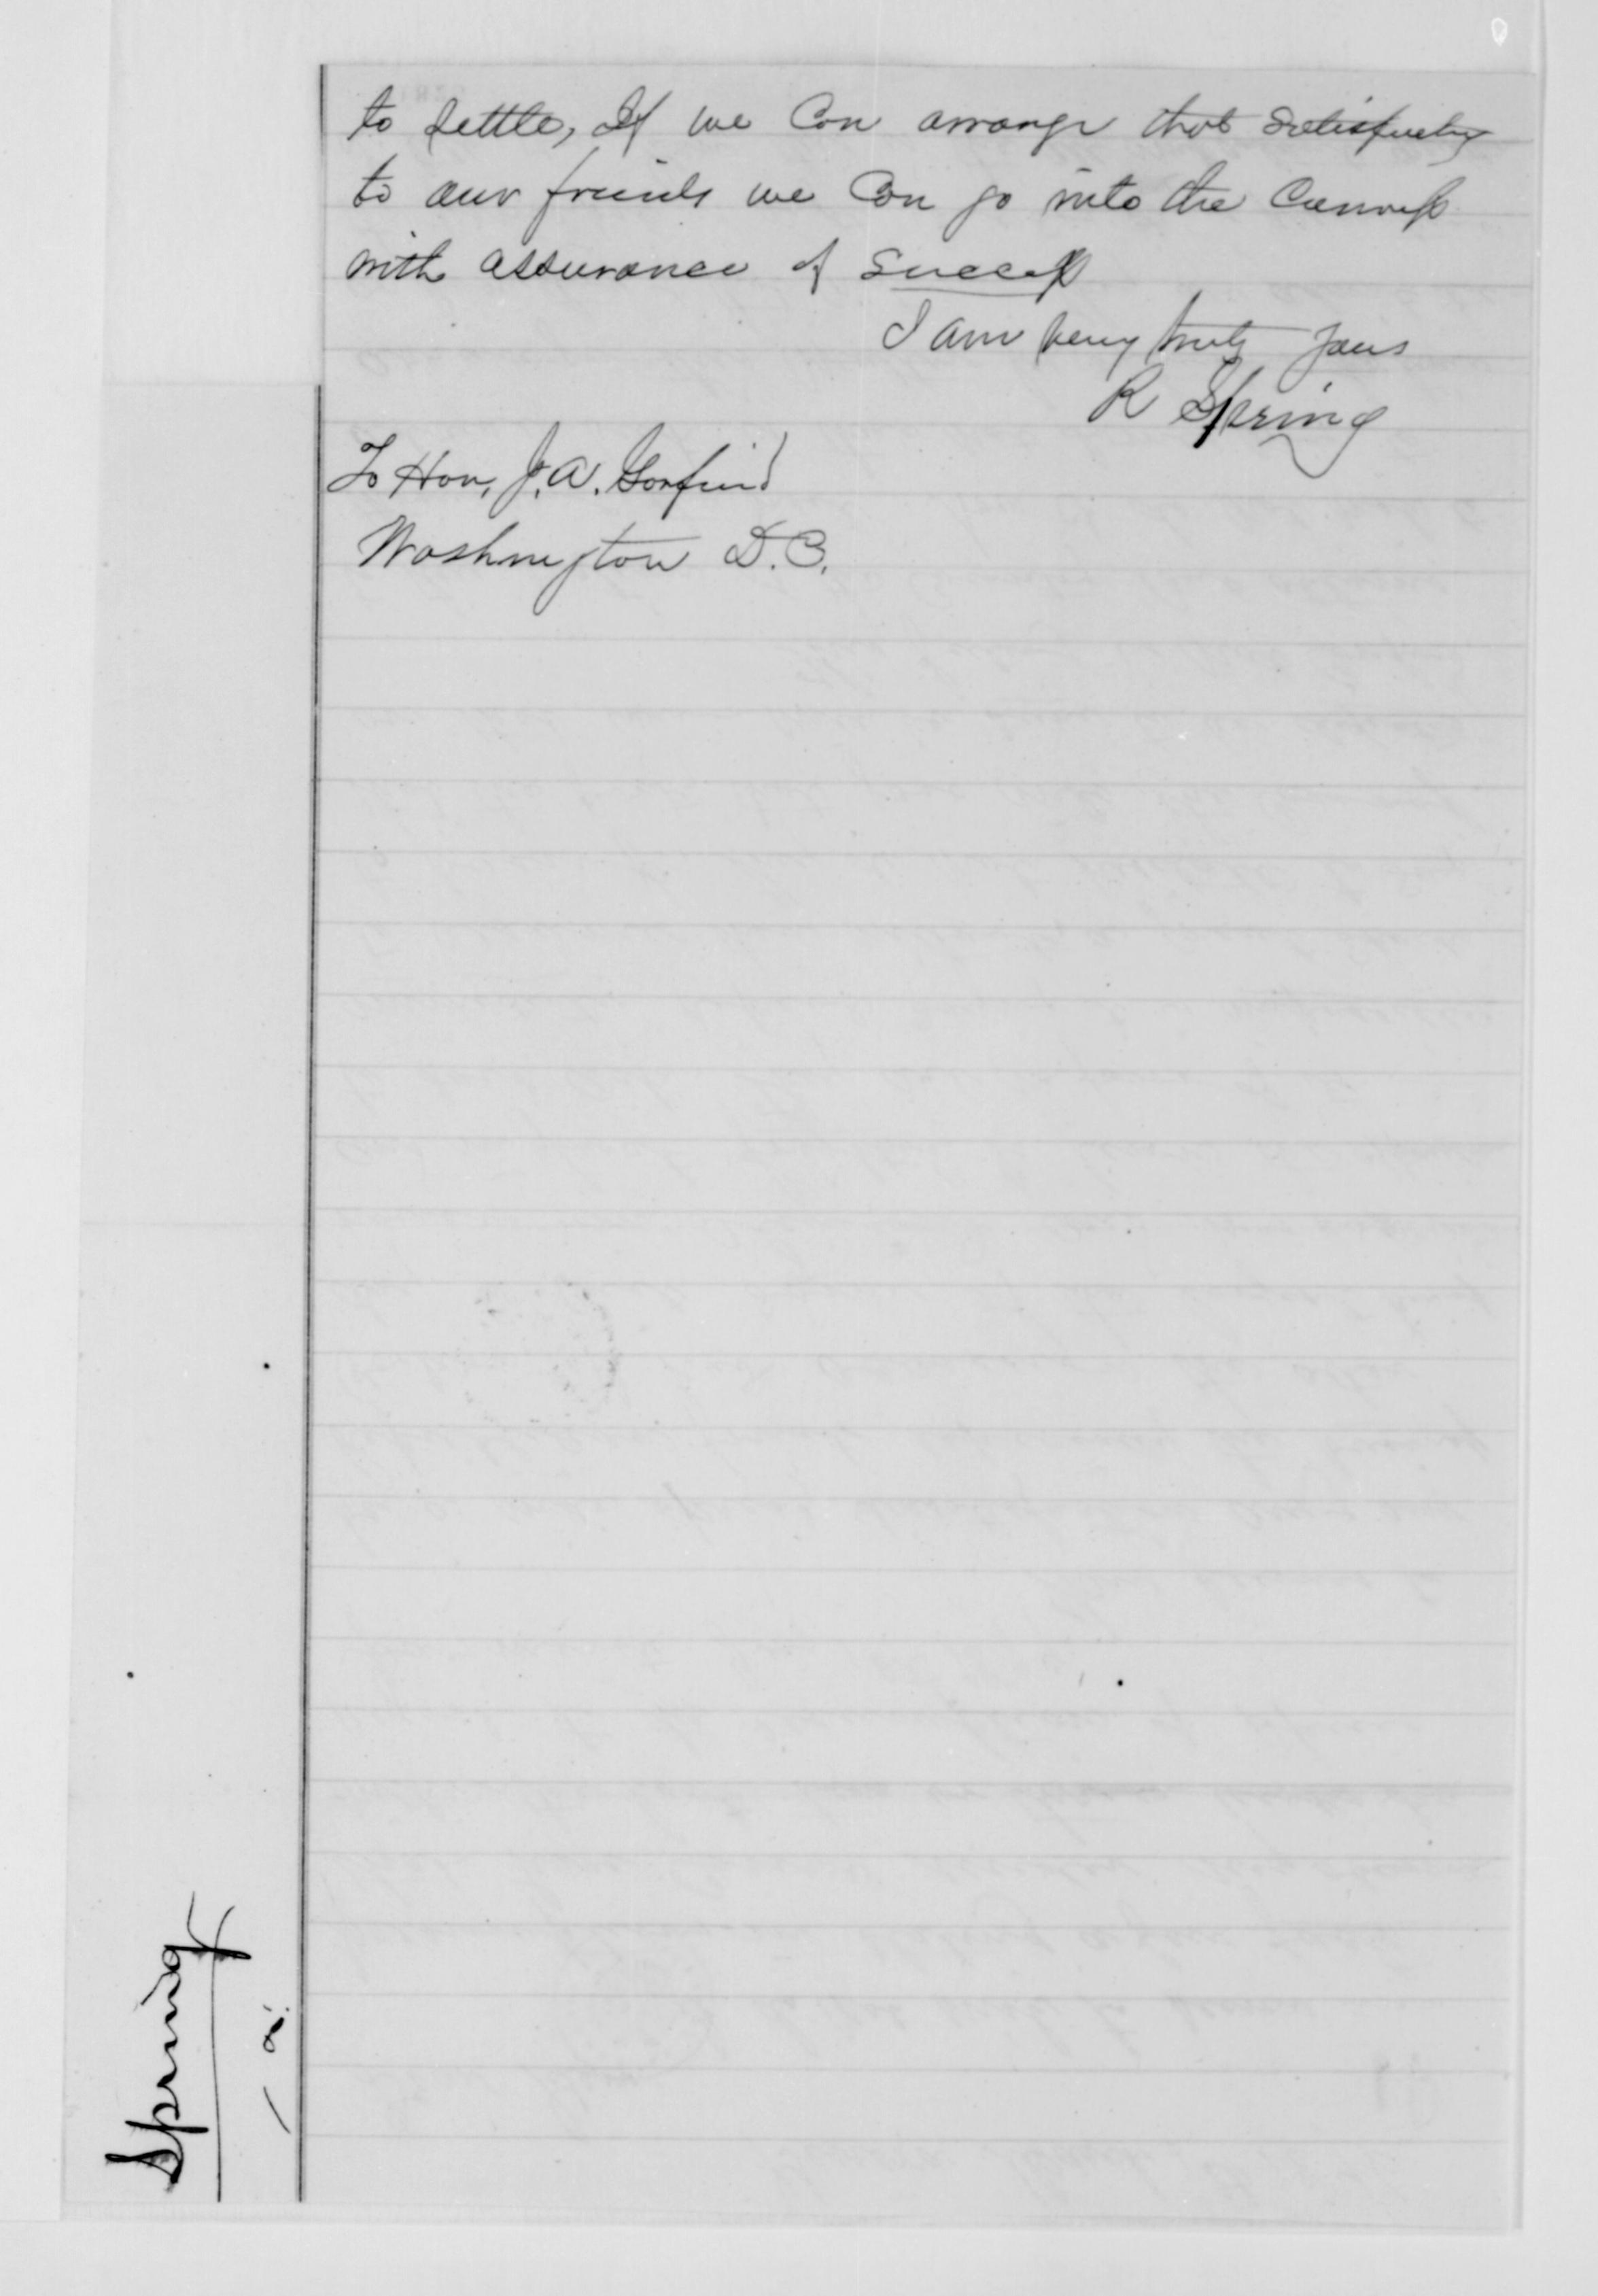 to settle, If we Can arrange that satisfactory
to our friends we Can go into the Canvass
with assurance of success
I am very truly yours
R Spring
To Hon. J. A. Garfield
Washington D. C.
Spring